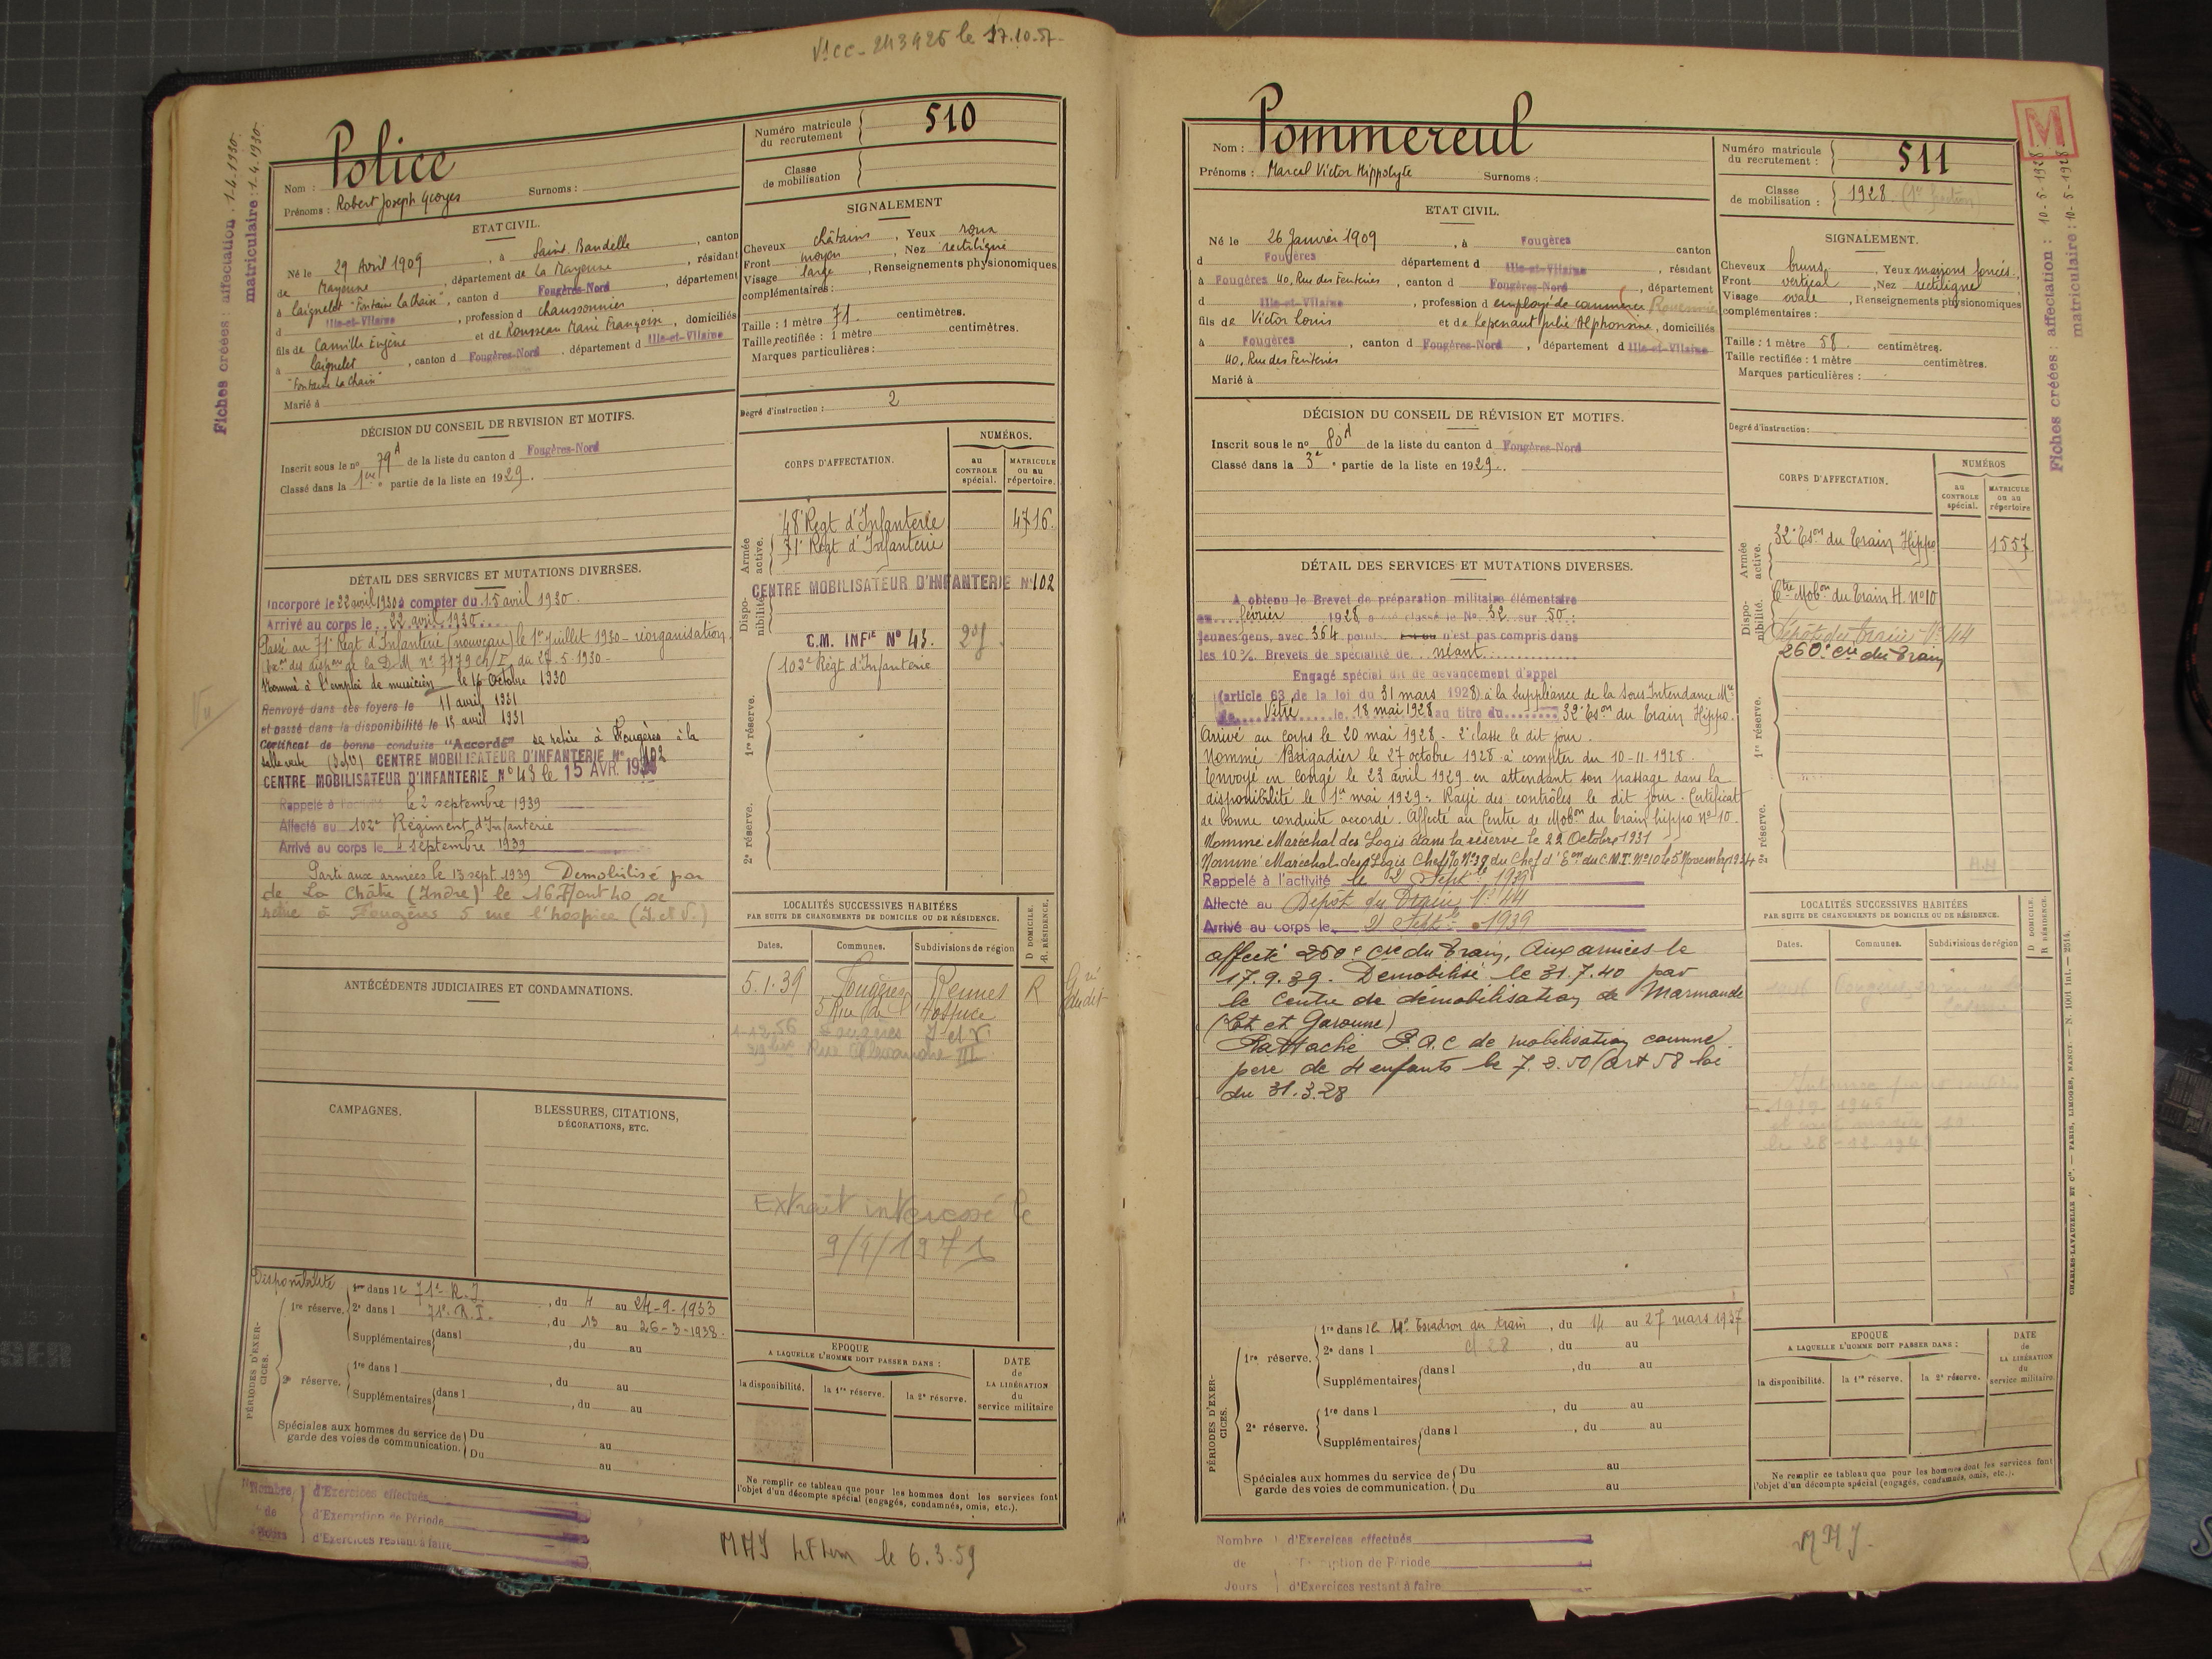 V1CC-243926 le 17.10.57-
Fiches créées : affectation : 1-4-1930
matriculaire : 1-4-1930
Nom : Police
Prénoms : Robert Joseph Georges Surnoms :
ETAT CIVIL.
Né le 29 Avril 1909, à Saint Baudelle, canton
de Mayenne, département de La Mayenne, résidant
à Laignelet "Fontaine La Chaise", canton d Fougères-Nord, département
d Ille-et-Vilaine, profession d chaussonnier
fils de Camille Eugène et de Rousseau Marie Françoise, domiciliés
à Laignelet, canton d Fougères-Nord, département d Ille-et-Vilaine
"Fontaine La Chaise"
Marié à
DÉCISION DU CONSEIL DE REVISION ET MOTIFS.
Inscrit sous le no 79A de la liste du canton d Fougères-Nord
Classé dans la 1ère partie de la liste en 1929.
DÉTAIL DES SERVICES ET MUTATIONS DIVERSES.
Incorporé le 22 avril 1930 à compter du 15 avril 1930.
Arrivé au corps le 22 avril 1930
Passé au 71e Régt d'Infanterie (nouveau) le 1er Juillet 1930 - réorganisation.
des dispons de la D.M. no 7179 du 27.5.1930-
Nommé à l'emploi de musicien le 16 Octobre 1930
Renvoyé dans ses foyers le 11 avril 1931
et passé dans la disponibilité le 15 avril 1931
Certificat de bonne conduite "Accordé" se retire à Fougères à la
salle verte (I&V) CENTRE MOBILISATEUR D'INFANTERIE No 102
CENTRE MOBILISATEUR D'INFANTERIE No 43 le 15 AVR. 1934
Rappelé à l'activité le 2 septembre 1939
Affecté au 102e Régiment d'Infanterie
Arrivé au corps le 4 septembre 1939
Parti aux armées le 13 sept 1939 Démobilisé par
de La Châtre (Indre) le 16 Aout 40 se
retire à Fougères 5 rue l'hospice (I. et V.)
ANTÉCÉDENTS JUDICIAIRES ET CONDAMNATIONS.
CAMPAGNES.
BLESSURES, CITATIONS,
DÉCORATIONS, ETC.
PÉRIODES D'EXERCICES.
Disponibilité
1re réserve. 1re dans le 71e R.I., du 4 au 24-9-1933
2e dans l 71e R.I., du 13 au 26-3-1938.
Supplémentaires dans l , du au
2e réserve. 1re dans l , du au
Supplémentaires dans l , du au
Spéciales aux hommes du service de garde des voies de communication. Du au
Du au
Nombre de Jours
d'Exercices effectués
d'Exemption de Période
d'Exercices restant à faire
Numéro matricule du recrutement 510
Classe de mobilisation
SIGNALEMENT
Cheveux châtains, Yeux roux
Front moyen, Nez rectiligne
Visage large, Renseignements physionomiques
complémentaires :
Taille : 1 mètre 71 centimètres.
Taille rectifiée : 1 mètre centimètres.
Marques particulières :
Degré d'instruction : 2
CORPS D'AFFECTATION.
NUMÉROS.
AU CONTROLE spécial.
MATRICULE OU AU répertoire.
Armée active.
48e Régt d'Infanterie 4716.
71e Régt d'Infanterie
Disponibilité.
CENTRE MOBILISATEUR D'INFANTERIE No 102
C.M. INFIE No 43.
1re réserve.
102e Régt d'Infanterie
2e réserve.
LOCALITÉS SUCCESSIVES HABITÉES
PAR SUITE DE CHANGEMENTS DE DOMICILE OU DE RÉSIDENCE.
D DOMICILE.
R. RÉSIDENCE.
Dates. Communes. Subdivisions de région
5.1.39 Fougères Rennes R
5 Rue de l'Hospice
1-12.56 Fougères I et V
39 bis Rue Alexandre III
Extrait
9/4/1971
EPOQUE
A LAQUELLE L'HOMME DOIT PASSER DANS :
la disponibilité. la 1re réserve. la 2e réserve.
DATE de LA LIBÉRATION du service militaire
Ne remplir ce tableau que pour les hommes dont les services font
l'objet d'un décompte spécial (engagés, condamnés, omis, etc.).
le 6.3.59
M
Fiches créées : affectation : 10-5-1928
matriculaire : 10-5-1928
Nom : Pommereul
Prénoms : Marcel Victor Hippolyte Surnoms :
ETAT CIVIL.
Né le 26 Janvier 1909, à Fougères canton
d Fougères département d Ille-et-Vilaine, résidant
à Fougères 40, Rue des Feuteries, canton d Fougères-Nord, département
d Ille-et-Vilaine, profession d employé de commerce
fils de Victor Louis et de Lepenaut Julie Alphonsine, domiciliés
à Fougères, canton d Fougères-Nord, département d Ille-et-Vilaine
40, Rue des Feuteries
Marié à
DÉCISION DU CONSEIL DE RÉVISION ET MOTIFS.
Inscrit sous le no 80A de la liste du canton d Fougères-Nord
Classé dans la 3e partie de la liste en 1929.
DÉTAIL DES SERVICES ET MUTATIONS DIVERSES.
A obtenu le Brevet de préparation militaire élémentaire
en février 1928 a été classé le No 32 sur 50
jeunes gens, avec 364 points n'est pas compris dans
les 10 % Brevets de spécialité de néant
Engagé spécial dit de devancement d'appel
(article 63 de la loi du 31 mars 1928) à la Suppléance de la Sous Intendance Mre
de Vitré le 18 mai 1928 au titre du 32e Eson du Train Hippo.
Arrivé au corps le 20 mai 1928. 2e classe le dit jour.
Nommé Brigadier le 27 octobre 1928 à compter du 10-11-1928.
Envoyé en congé le 23 avril 1929 en attendant son passage dans la
disponibilité le 1er mai 1929. Rayé des contrôles le dit jour. Certificat
de bonne conduite accordé. Affecté au Centre de Mobon du train hippo no 10.
Nommé Maréchal des Logis dans la réserve le 22 Octobre 1931
Nommé Maréchal des Logis Chef No 37 du Chef d'Eon du C.M.T. No 10 le 5 Novembre 1934
Rappelé à l'activité le 2 Septbre 1939
Affecté au Dépôt du Train No 44
Arrivé au corps le 2 Septbre 1939
affecté 260e Cie du Train, Aux armées le
17.9.39. Démobilisé le 31.7.40 par
le Centre de démobilisation de Marmande
(Lot et Garonne)
Rattaché de mobilisation comme
père de 4 enfants le 7.3.50 (art 58 loi
du 31.3.28
PÉRIODES D'EXERCICES.
1re réserve. 1re dans le Escadron du train, du 14 au 27 mars 1937
2e dans l , du au
Supplémentaires dans l , du au
2e réserve. 1re dans l , du au
Supplémentaires dans l , du au
Spéciales aux hommes du service de garde des voies de communication. Du au
Du au
Nombre de Jours
d'Exercices effectués
d'Exemption de Période
d'Exercices restant à faire
Numéro matricule du recrutement : 511
Classe de mobilisation : 1928
SIGNALEMENT.
Cheveux bruns, Yeux marrons foncés
Front vertical, Nez rectiligne
Visage ovale, Renseignements physionomiques
complémentaires :
Taille : 1 mètre 58 centimètres.
Taille rectifiée : 1 mètre centimètres.
Marques particulières :
Degré d'instruction :
CORPS D'AFFECTATION.
NUMÉROS
AU CONTROLE spécial.
MATRICULE OU AU répertoire
Armée active.
32e Eson du Train Hippo 1557
Disponibilité.
Ctre Mobon du Train H. No 10
Dépôt du Train No 44
260e Cie du Train
1re réserve.
2e réserve.
LOCALITÉS SUCCESSIVES HABITÉES
PAR SUITE DE CHANGEMENTS DE DOMICILE OU DE RÉSIDENCE.
D DOMICILE.
R RÉSIDENCE.
Dates. Communes. Subdivisions de région
EPOQUE
A LAQUELLE L'HOMME DOIT PASSER DANS :
la disponibilité. la 1re réserve. la 2e réserve.
DATE de LA LIBÉRATION du service militaire.
Ne remplir ce tableau que pour les hommes dont les services font
l'objet d'un décompte spécial (engagés, condamnés, omis, etc.).
CHARLES-LAVAUZELLE ET Cie. — PARIS, LIMOGES, NANCY